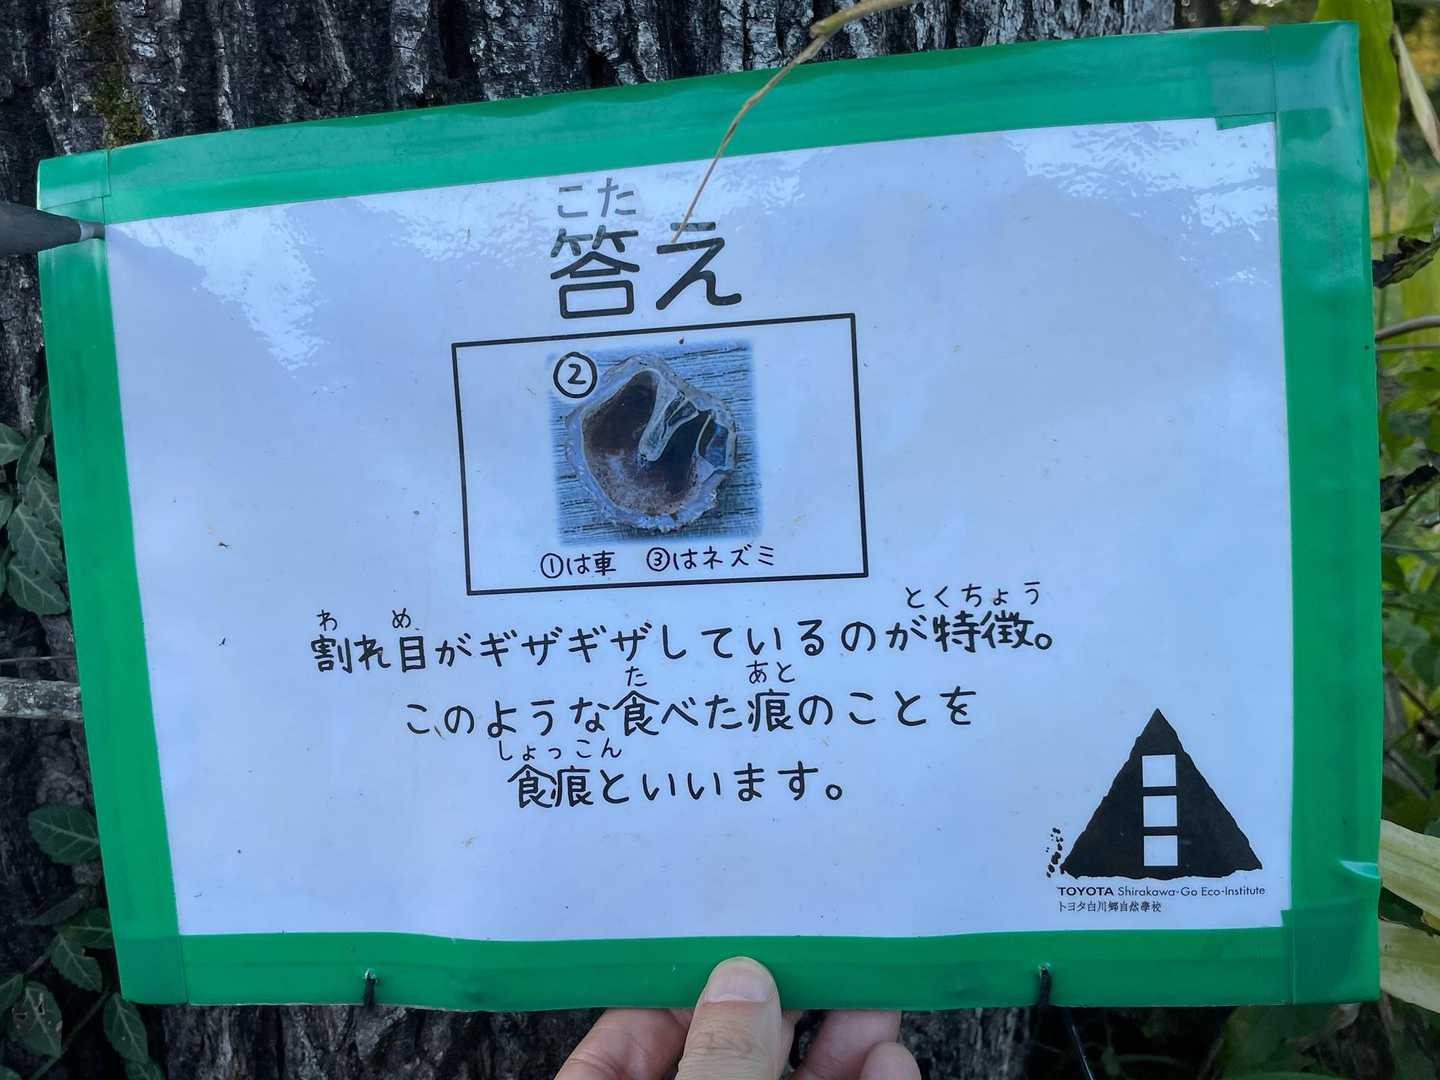 こた
答え
②
①は車 ③はネズミ
わ め とくちょう
割れ目がギザギザしているのが特徴。
た あと
このような食べた痕のことを
しょっこん
食痕といいます。
TOYOTA Shirakawa-Go Eco-Institute
トヨタ白川郷自然學校